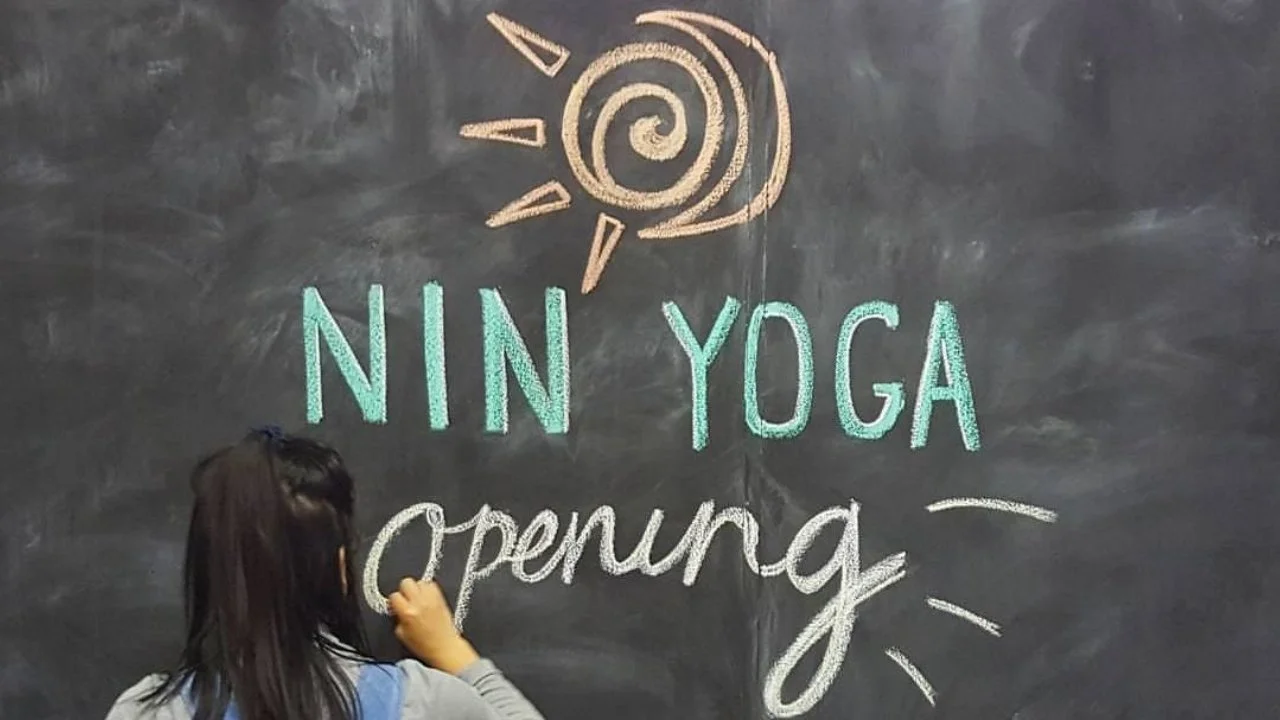 NIN YOGA
opening